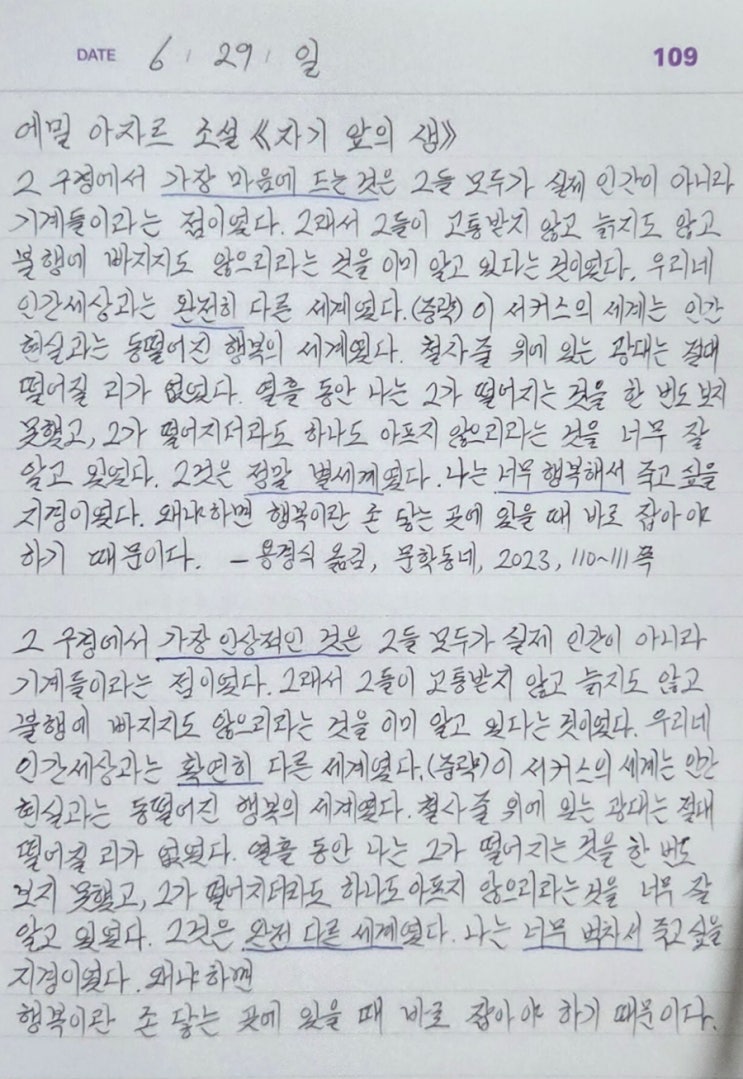 DATE 6 / 29 / 일 109
에밀 아자르 소설 《자기 앞의 생》
그 구경에서 가장 마음에 드는 것은 그들 모두가 실제 인간이 아니라
기계들이라는 점이었다. 그래서 그들이 고통받지 않고 늙지도 않고
불행에 빠지지도 않으리라는 것을 이미 알고 있다는 것이었다. 우리네
인간세상과는 완전히 다른 세계였다.(중략) 이 서커스의 세계는 인간
현실과는 동떨어진 행복의 세계였다. 철사줄 위에 있는 광대는 절대
떨어질 리가 없었다. 열흘 동안 나는 그가 떨어지는 것을 한 번도 보지
못했고, 그가 떨어지더라도 하나도 아프지 않으리라는 것을 너무 잘
알고 있었다. 그것은 정말 별세계였다. 나는 너무 행복해서 죽고 싶을
지경이었다. 왜냐하면 행복이란 손 닿는 곳에 있을 때 바로 잡아야
하기 때문이다. - 용경식 옮김, 문학동네, 2023, 110~111쪽
그 구경에서 가장 인상적인 것은 그들 모두가 실제 인간이 아니라
기계들이라는 점이었다. 그래서 그들이 고통받지 않고 늙지도 않고
불행에 빠지지도 않으리라는 것을 이미 알고 있다는 것이었다. 우리네
인간세상과는 확연히 다른 세계였다.(중략) 이 서커스의 세계는 인간
현실과는 동떨어진 행복의 세계였다. 철사줄 위에 있는 광대는 절대
떨어질 리가 없었다. 열흘 동안 나는 그가 떨어지는 것을 한 번도
보지 못했고, 그가 떨어지더라도 하나도 아프지 않으리라는 것을 너무 잘
알고 있었다. 그것은 완전 다른 세계였다. 나는 너무 벅차서 죽고 싶을
지경이었다. 왜냐하면
행복이란 손 닿는 곳에 있을 때 바로 잡아야 하기 때문이다.